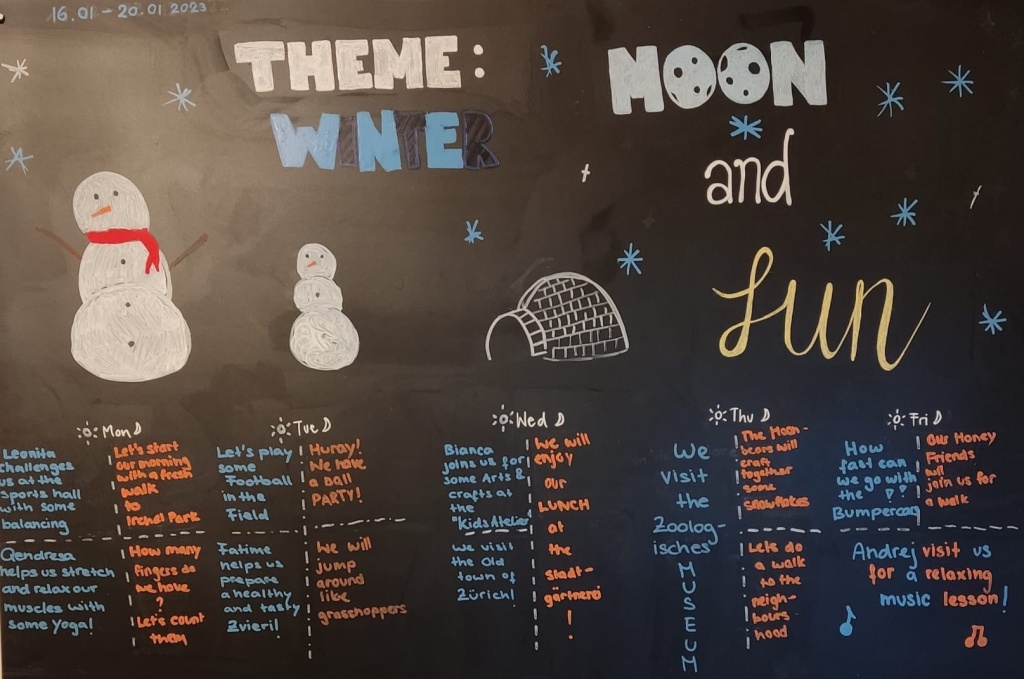 16.01 - 20.01 2023
THEME:
WINTER
MOON
and
fun
Mon
Leonita
challenges
us at the
sports hall
with some
balancing
Let's start
our morning
with a fresh
walk
to
Irchel Park
Qendresa
helps us stretch
and relax our
muscles with
some Yoga!
How many
fingers do
we have
?
Let's count
them
Tue
Let's play
some
Football
in the
Field
Huray!
We have
a Ball
PARTY!
Fatime
helps us
prepare
a healthy
and tasty
Zvieri!
We will
jump
around
like
grasshoppers
Wed
Bianca
joins us for
some Arts &
crafts at
the
"Kids Atelier"
We will
enjoy
our
LUNCH
at
the
Stadt-
gärtnerei
!
We visit
the Old
town of
Zürich!
Thu
We
visit
the
Zoolog-
isches
MUSEUM
The Moon-
bears will
craft
together
some
snowflakes
Lets do
a walk
to the
neigh-
bours
hood
Fri
How
fast can
we go with
the
Bumpercars
??
Our Honey
Friends
will
join us for
a walk
Andrej visit us
for a relaxing
music lesson!